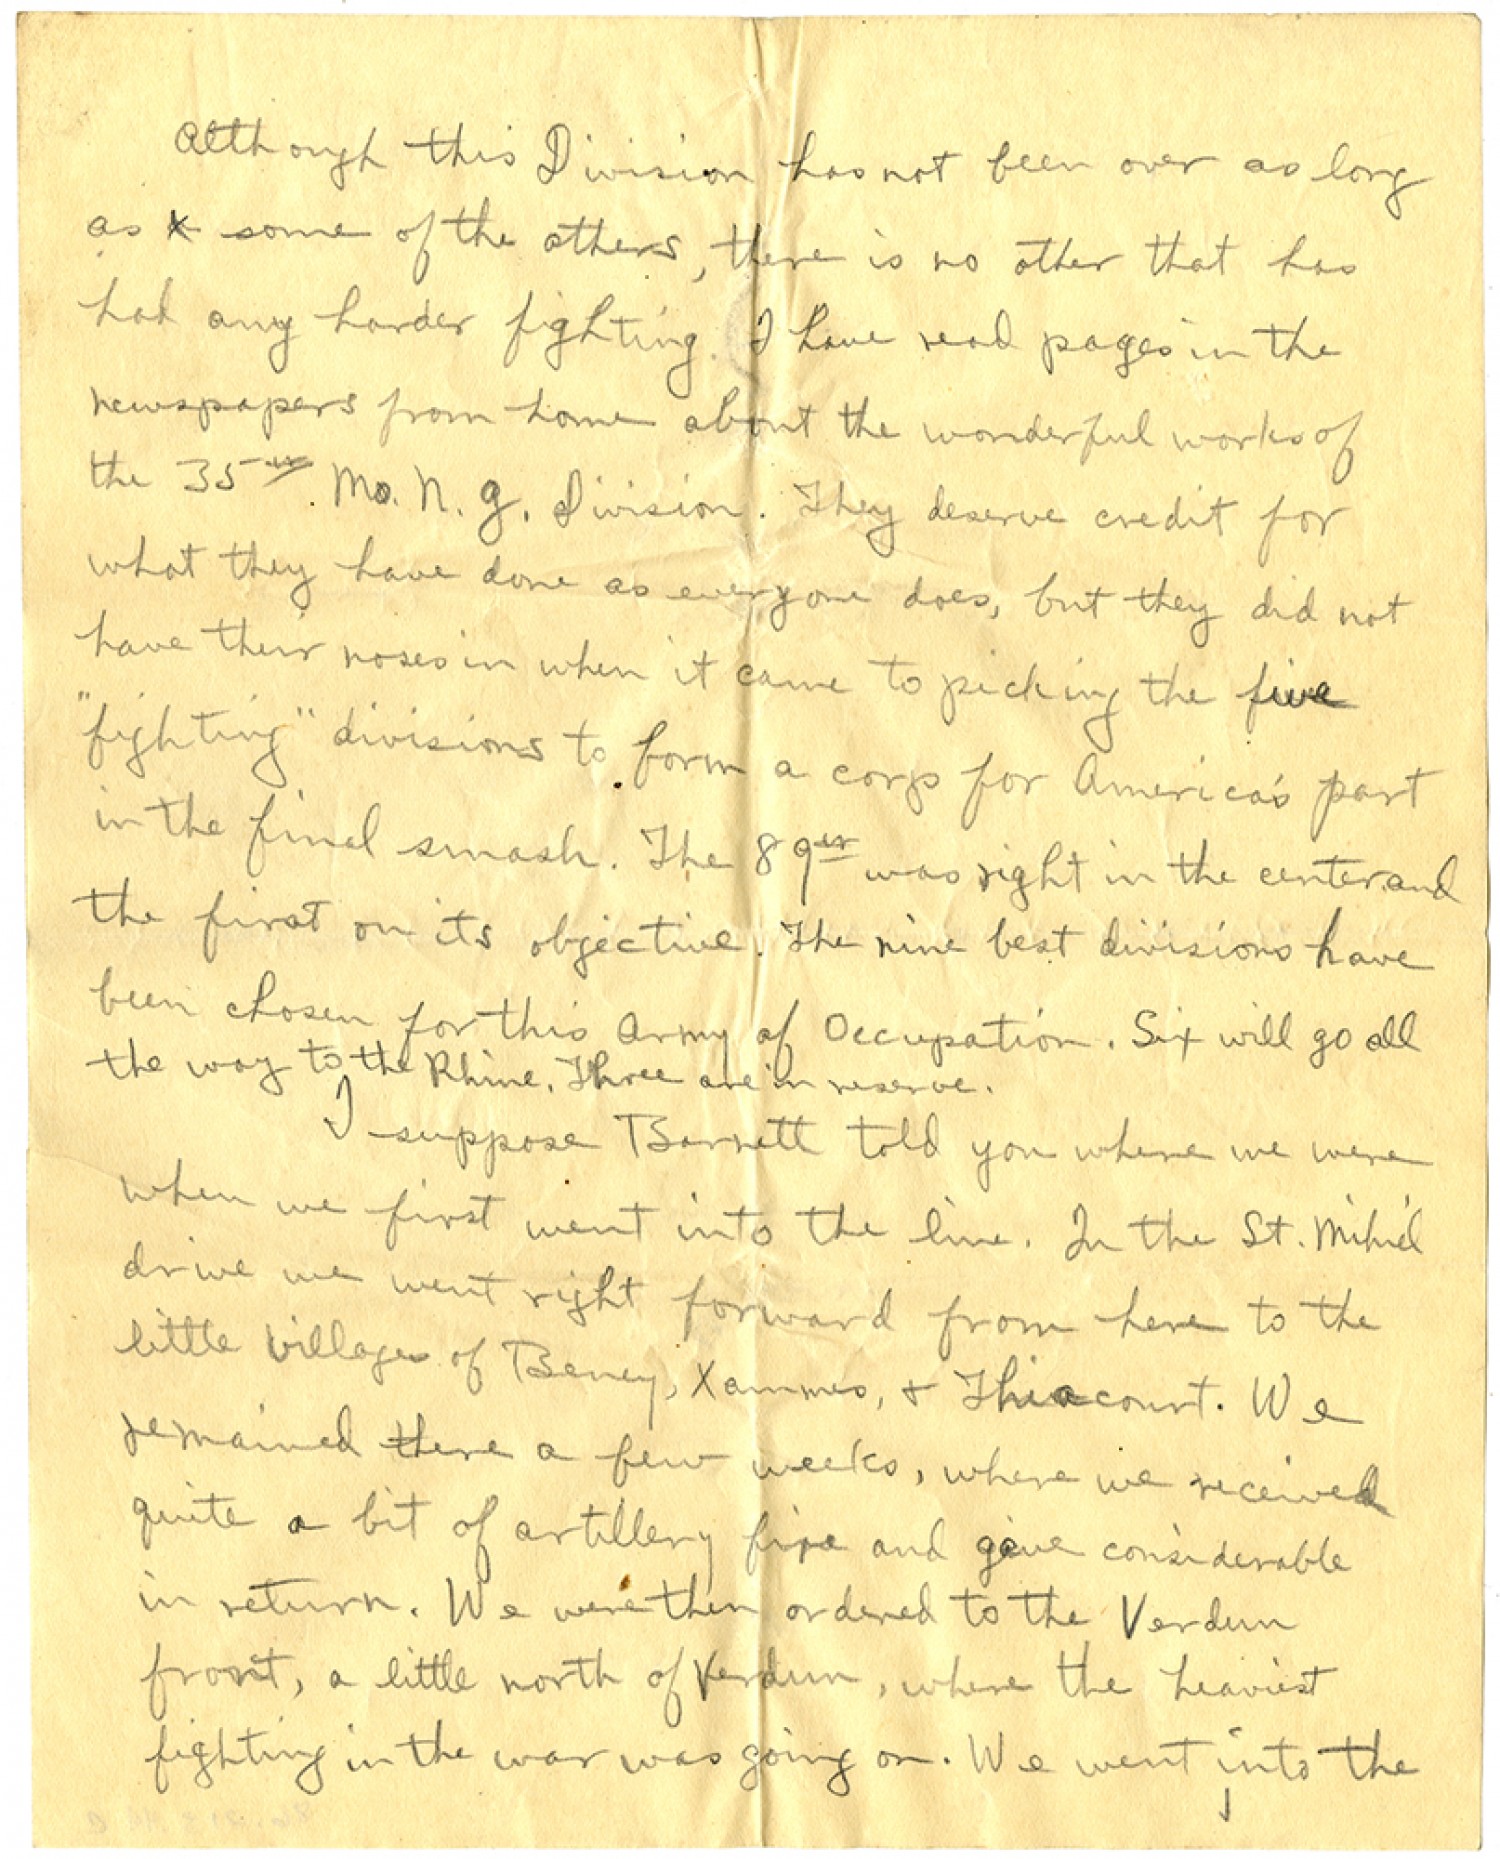 Although this Division has not been over as long
as some of the others, there is no other that has
had any harder fighting. I have read pages in the
newspapers from home about the wonderful works of
the 35th Mo. N. G. Division. They deserve credit for
what they have done as everyone does, but they did not
have their noses in when it came to picking the five
"fighting" divisions to form a corps for America's part
in the final smash. The 89th was right in the center and
the first on its objective. The nine best divisions have
been chosen for this Army of Occupation. Six will go all
the way to the Rhine. Three are in reserve.
I suppose Barnett told you where we were
when we first went into the line. In the St. Mihiel
drive we went right forward from here to the
little villages of Beney, Xammes, & Thiacourt. We
remained there a few weeks, where we received
quite a bit of artillery fire and gave considerable
in return. We were then ordered to the Verdun
front, a little north of Verdun, where the heaviest
fighting in the war was going on. We went into the